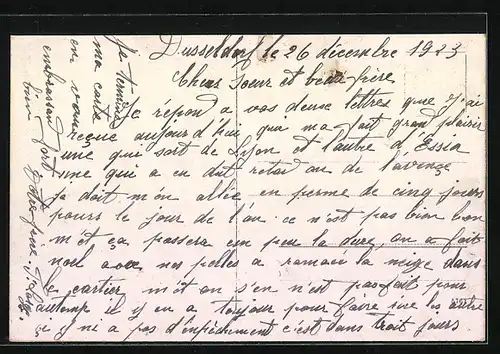 Dusseldorf le 26 décembre 1923
Chers Soeur et beau frère
Je répond a vos deuse lettres que j'ai
reçue aujourd'hui qui ma fait grand plaisir
une qui sort de Lyon et l'autre d'Essia
une qui a eu du retard ou de l'avence
je doit m'en allée en perme de cinq jours
pours le jour de l'an. ce n'est pas bien bon
mét ça passera un peu la dure, on a fait
noel avec nos pelles a ramacé la neige dans
le cartier mét on s'en n'est pas fait pour
autemp il y en a toujour pour faire rire les autre
si y ni a pas d'inpéchement c'est dans troit jours
Je termine
ma carte
en vous
embrassan fort
bien
votre frère